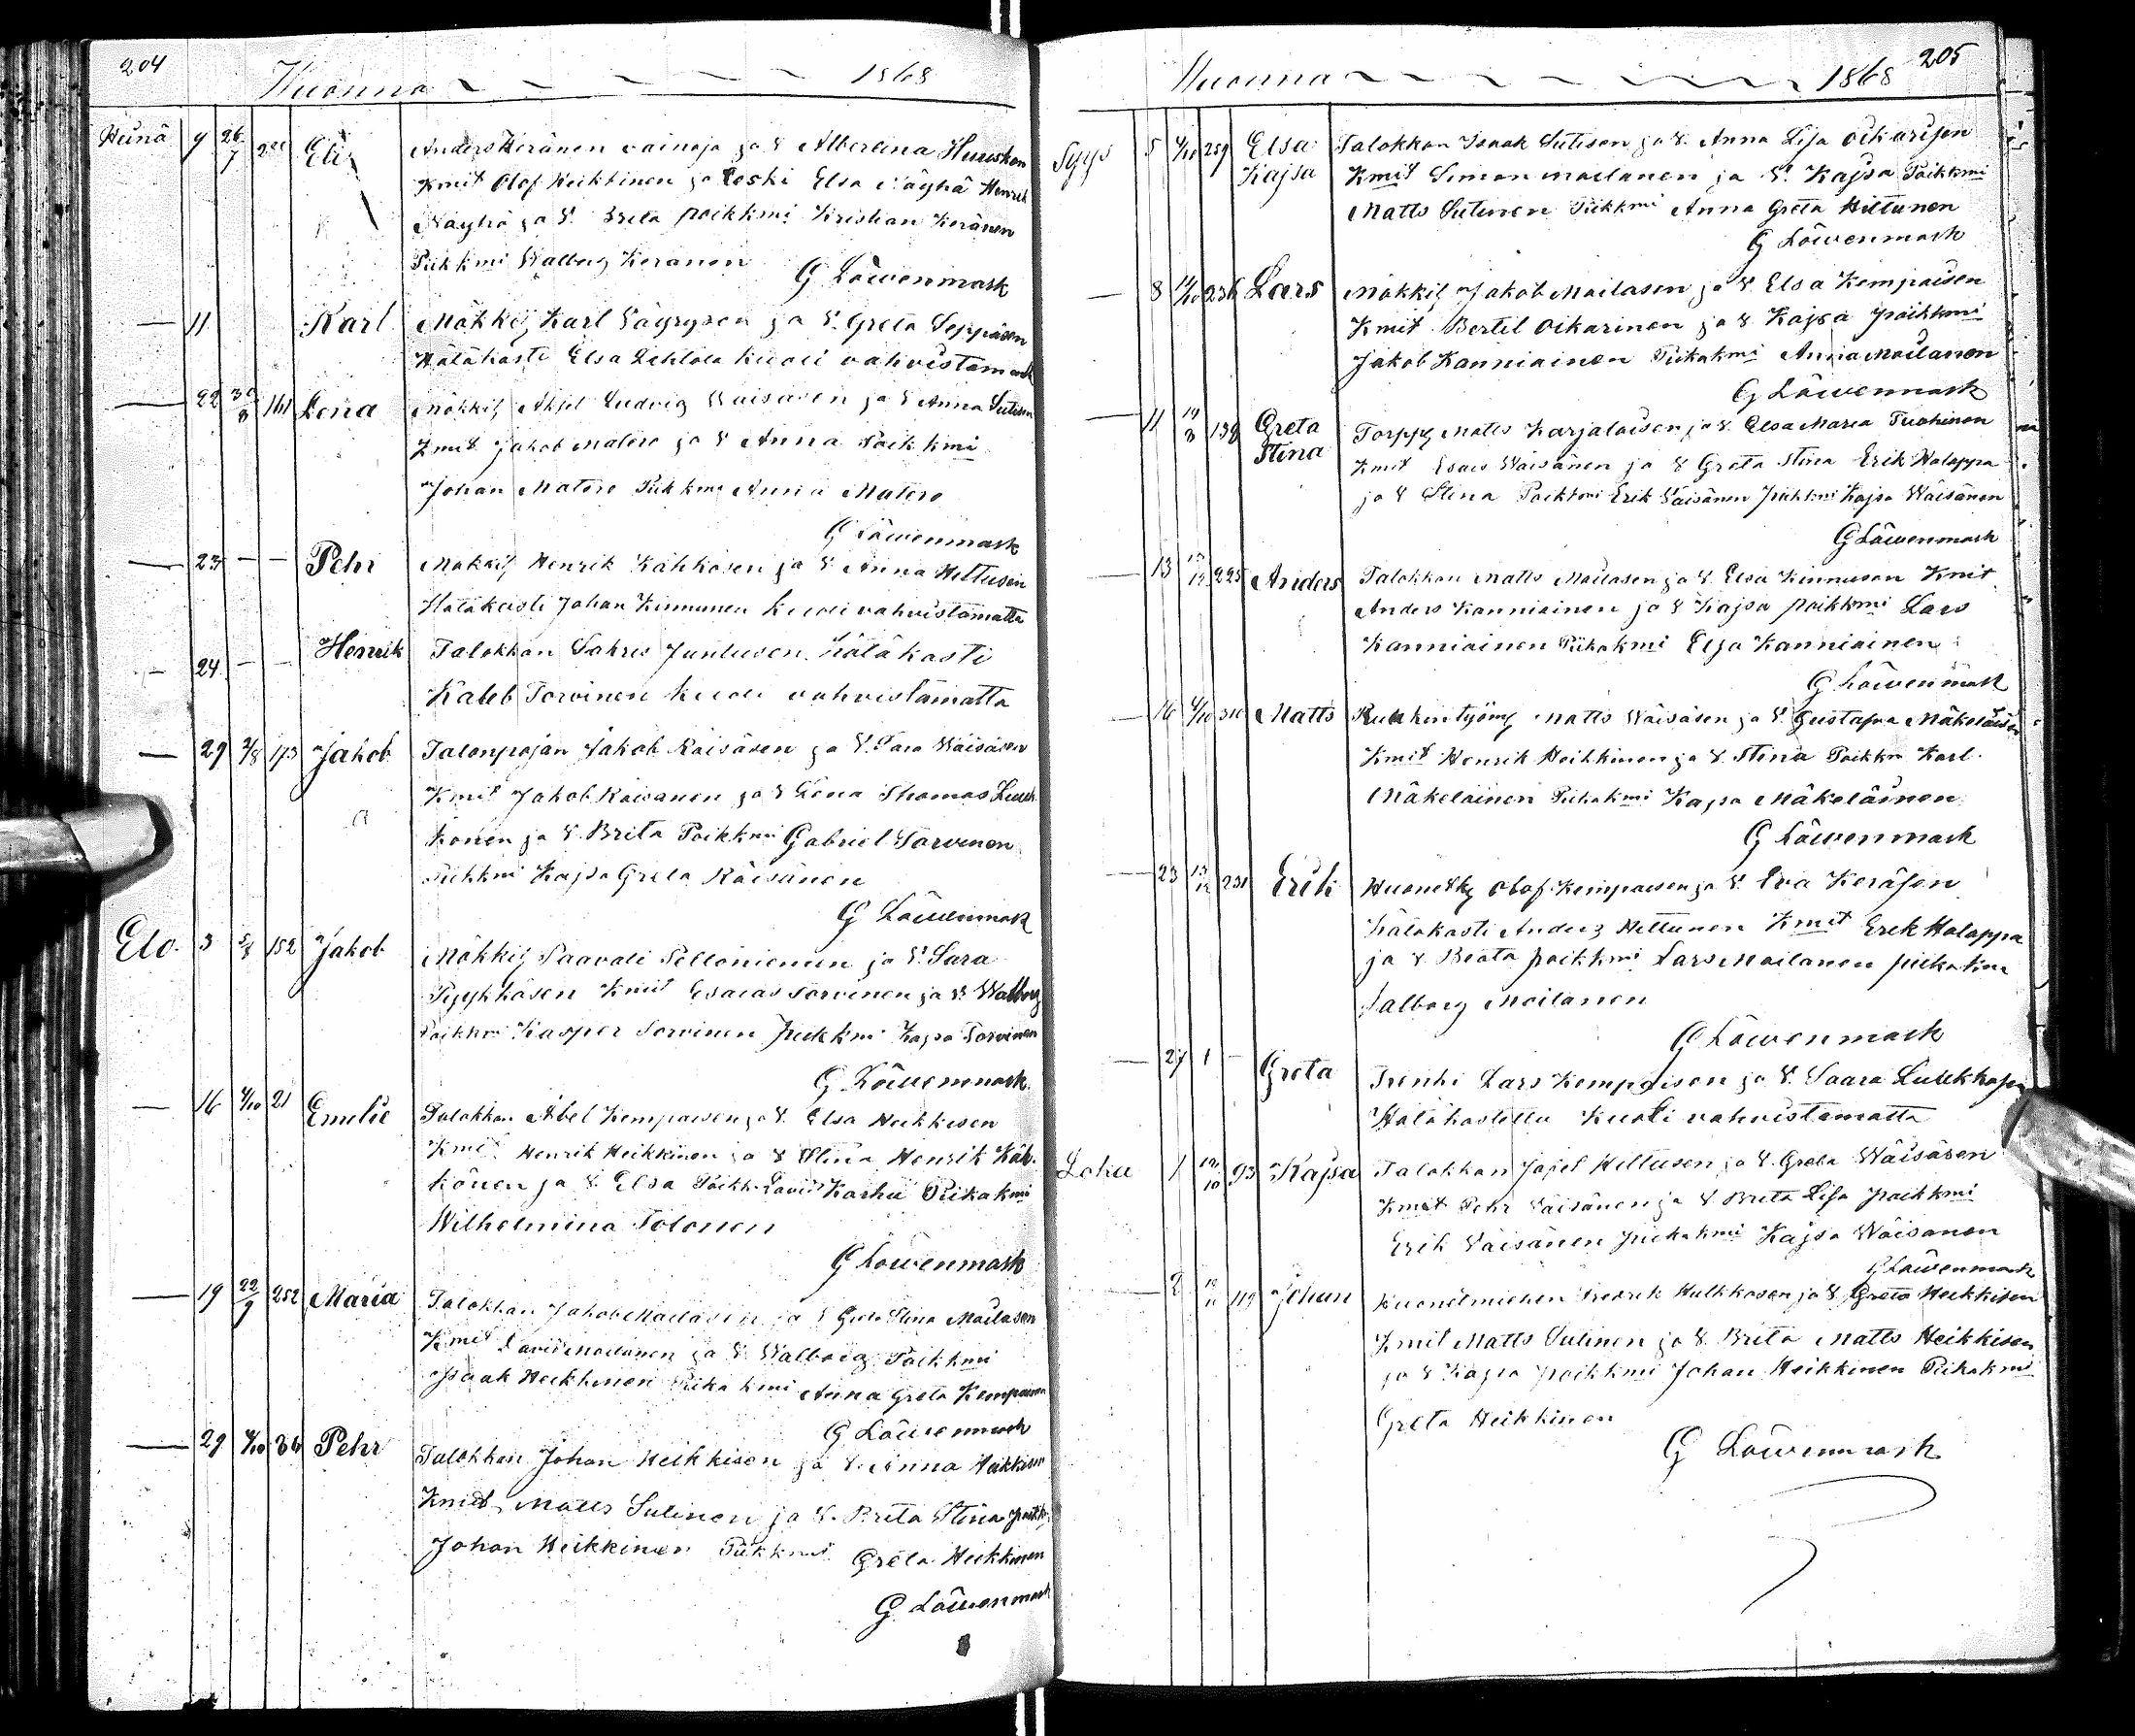 204
Wuonna 1868
Heinä 9 26/7 Eli Anders Keränen vainaja ja V Albertina Huuskon
Kmit Olof Heikkinen ja leski Elsa Näyhä Henrik
Näyhä ja V. Brita poikkmi Kristian Keränen
Piikkmi Walborg Keranen G Löwenmark
11 Karl Mökkilj Karl Väyrysen ja V. Greta Seppäsen
Hätäkasti Elsa kuoli vahvistamat
22 30/8 161 Lena Mökkilj Aksel Ludvig Waisäsen ja V Anna Sutisen
Kmit Jakob Matero ja V Anna Poikkmi
Johan Matero Piikkmi Anna Matero
G Löwenmark
23 — — Pehr Mökkilj Henrik Kähkösen ja V Anna Hiltusen
Hätäkasti Johan Kinnunen kuoli vahvistamatta
24 — — Henrik Talokkan Sakris Juntusen hätäkasti
Kaleb Torvinen kuoli vahvistamatta
29 2/8 173 Jakob Talonpojan Jakob Räisäsen ja V. Sara Wäisäsen
Kmit Jakob Räisänen ja V Lena Thomas Luuk
konen ja V. Brita Poikkmi Gabriel Torvinen
Piikkmi Kajsa Greta Räisänen
G Löwenmark
Elo. 3 5/8 152 Jakob Mökkilj Paavali Pelloniemen ja V. Sara
Pyykkösen Kmit Esaias Torvinen ja V. Walborg
Poikkmi Kasper Torvinen piikkmi Kajsa Torvinen
G Löwenmark
16 4/10 21 Emelie Talokkan Abel Kempaisen ja V. Elsa Heikkisen
Kmit Henrik Heikkinen ja V Stina Henrik Käh-
könen ja V Elsa Poikk David Karhu Piikakmi
Wilhelmina Tolonen
G Löwenmark
19 22/9 252 Maria Talokkan Jakob Mailasen ja V Greta Stina Moilasen
Kmit David Moilanen ja V. Walborg Poikkmi
Isaak Heikkinen Piikakmi Anna Greta Kempainen
G Löwenmark
29 4/10 36 Pehr Talokkan Johan Heikkisen ja V. Anna Heikkisen
Kmit Matts Sutinen ja V. Brita Stina poikk
Johan Heikkinen Piikkmi Greta Heikkinen
G Löwenmark
205
Wuonna 1868
Syys 5 4/10 259 Elsa Kajsa Talokkan Isaak Sutisen ja V. Anna Lisa Oikarisen
Kmit Simon Moilanen ja V. Kajsa Poikkmi
Matts Sutinen Piikkmi Anna Greta Hiltunen
G Löwenmark
— 8 236 Lars Mökkilj Jakob Moilasen ja V. Elsa Kempaisen
Kmit Bertil Oikarinen ja V. Kajsa poikkmi
Jakob Kanniainen Piikakmi Anna Moilanen
G Löwenmark
11 138 Greta Stina Torpp Matts Karjalaisen ja V. Elsa Maria Tuohinen
Kmit Esais Wäisänen ja V Greta Stina Erik Holappa
ja V Stina Poikkmi Erik Väisänen piikkmi Kajsa Wäisänen
G Löwenmark
13 225 Anders Talokkan Matts Moilasen ja V. Elsa Kinnusen Kmit
Anders Kanniainen ja V Kajsa poikkmi Lars
Kanniainen Piikakmi Elsa Kanniainen
G Löwenmark
16 4/10 Matts Ruukintyöm Matts Wäisäsen ja V. Gustafva Mäkeläisen
Kmit Henrik Heikkinen ja V. Stina Poikkm Karl
Mäkeläinen Piikakmi Kajsa Mäkeläinen
G Löwenmark
23 13/12 231 Erik Huonetky Olof Kempaisen ja V. Eva Keräsen
Hätäkasti Anders Hiltunen Kmit Erik Holappa
ja V Beata poikkmi Lars Moilanen piikakm
Valborg Moilanen
G Löwenmark
27 1 — Greta Trenki Lars Kempaisen ja V. Saara
Hätäkastettu Kuoli vahvistamatta
Loka 1 93 Kajsa Talokkan Josef Hiltusen ja V. Greta Wäisäsen
Kmit Pehr Väisänen ja V Brita Lisa poikkmi
Erik Väisänen piikakmi Kajsa Wäisänen
G Löwenmark
2 119 Johan Huonelmiehen Fredrik Hulkkosen ja V Greta Heikkisen
Kmit Matts Sutinen ja V Brita Matts Heikkisen
ja V Kajsa poikkmi Johan Heikkinen Piikakmi
Greta Heikkinen
G Löwenmark